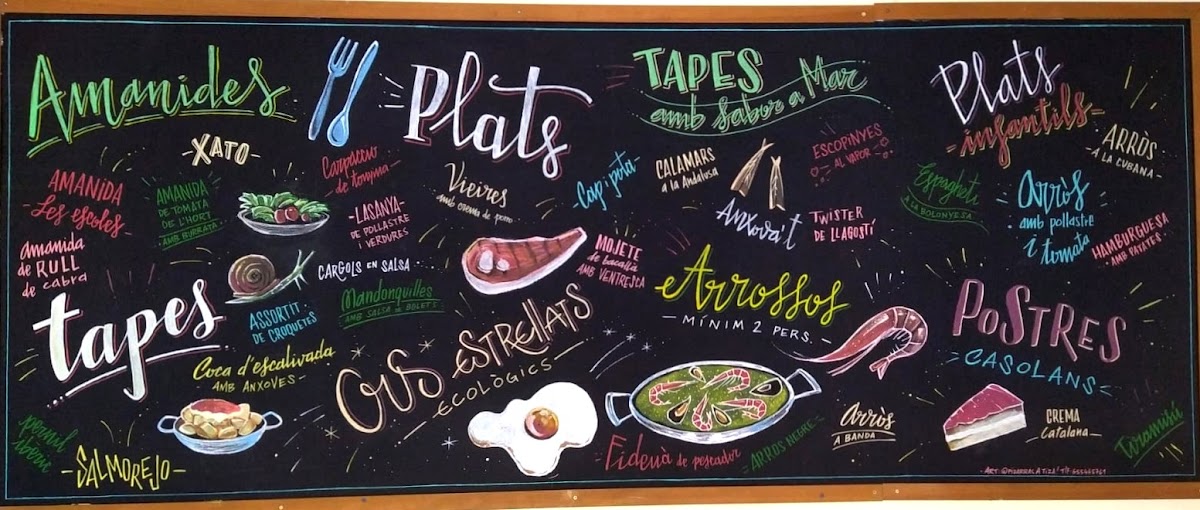 Amanides
XATO
AMANIDA
Les escoles
AMANIDA
DE TOMATA
DE L'HORT
AMB BURRATA
amanida
de RULL
de cabra
Plats
Carpaccio
de tonyina
LASANYA
DE POLLASTRE
I VERDURES
Vieires
amb crema de porro
Cap i pota
MOJETE
de bacallà
AMB VENTRESCA
TAPES
amb sabor a Mar
CALAMARS
a la Andalusa
ESCOPINYES
AL VAPOR
ANXOVA'T
TWISTER
DE LLAGOSTÍ
Plats
infantils
ARRÒS
A LA CUBANA
Espagheti
A LA BOLONYESA
Arròs
amb pollastre
i tomata
HAMBURGUESA
AMB PATATES
tapes
CARGOLS EN SALSA
Mandonguilles
AMB SALSA DE BOLETS
ASSORTIT
DE CROQUETES
Coca d'escalivada
AMB ANXOVES
pernil
iberic
SALMOREJO
OUS ESTRELLATS
ECOLÒGICS
Arrossos
MÍNIM 2 PERS.
Fideuà de pescador
ARROS NEGRE
Arròs
A BANDA
POSTRES
CASOLANS
CREMA
Catalana
Toramisú